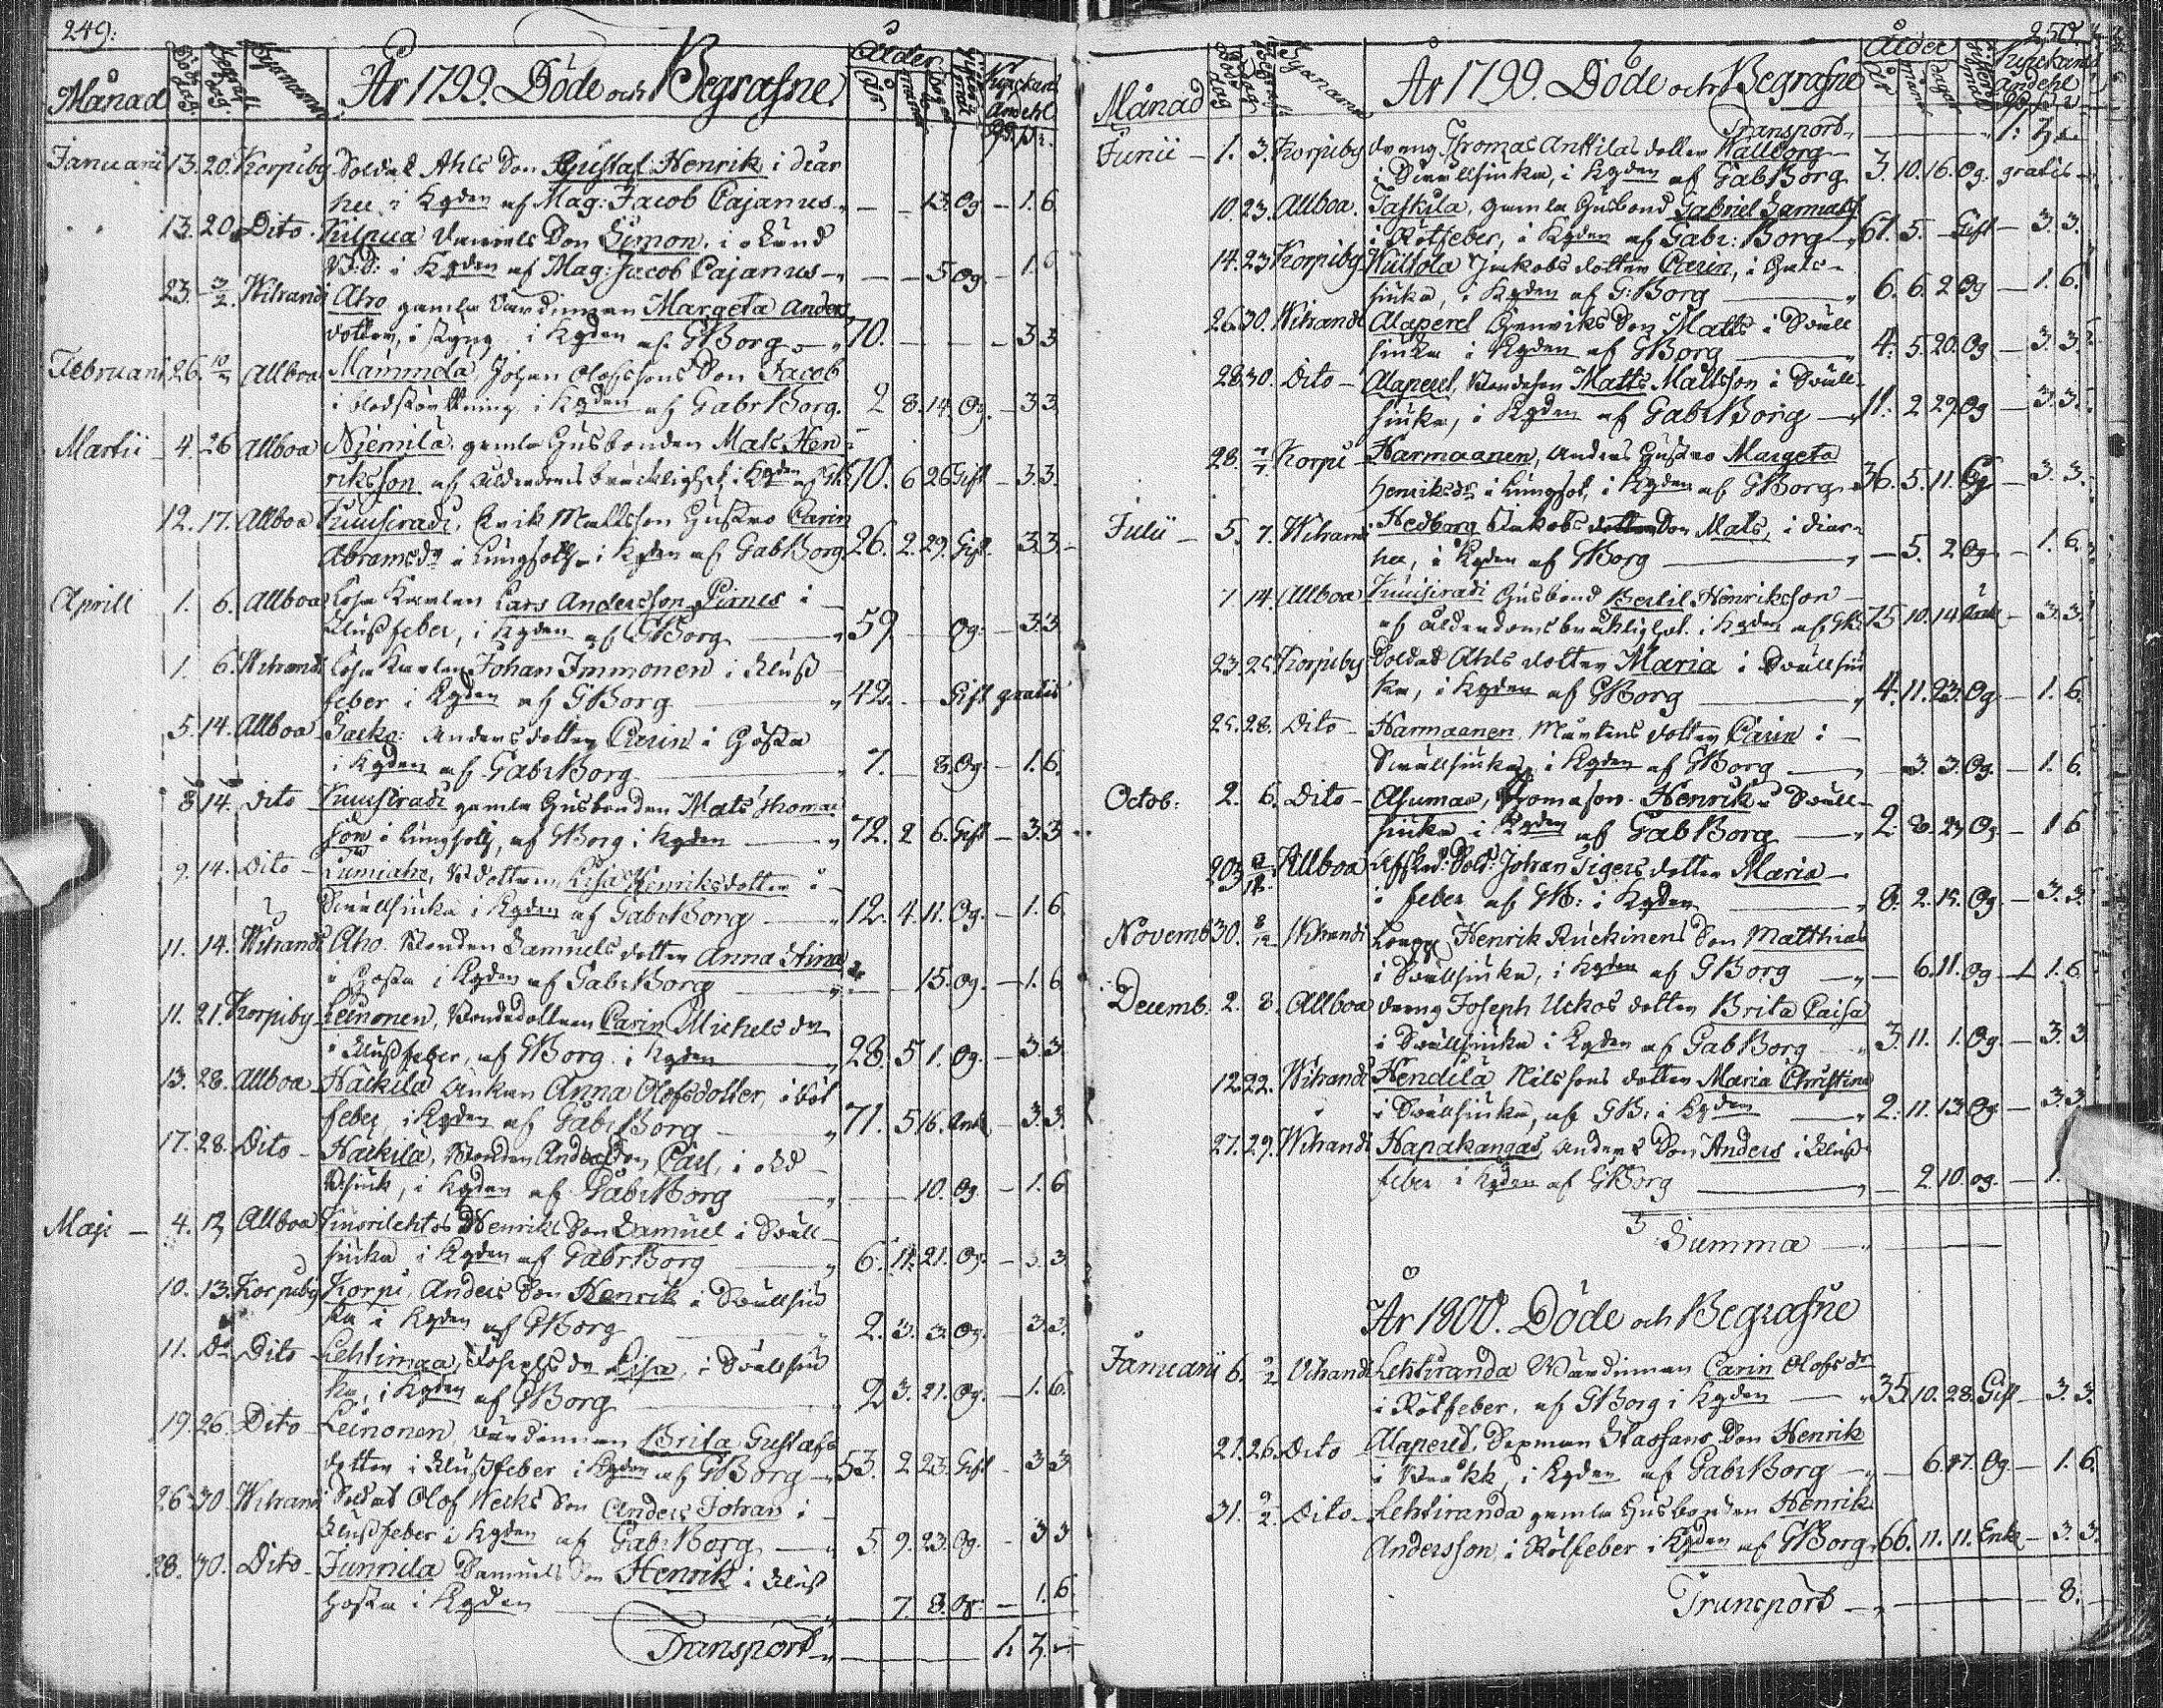 249:
Månad
Död dag
Begraf. dag
Byarnamn
År 1799. Döde och Begrafne.
Ålder
År
Kyrckans
Andehl
Januarii 13. 20. Korpiby Soldat Ahls Son Gustaf Henrik i diar
hee i Kyden af Mag: Jacob Cajanus - - 13. Og - 1. 6.
13. 20. Dito. Kilpua Daniels Son Simon, i okänd
i Kyden af Mag: Jacob Cajanus - - 5 Og - 1. 6
23. 3/2. Wihandi Aho gamla Värdinnan Margeta Anders
dotter, i styng i Kyden af GBorg - 70. - - - 33
Februarii 26. 10/3 Allboa Mämmelä, Johan Olofssons Son Jacob
i Kyden af GabrBorg. 2 8. 14. Og. - 33.
Martii - 4. 26 Allboa Niemilä, gamla Husbonden Mats Hen-
riksson af ålderdoms bräcklighet i Kyden af GB 70. 6 26 Gift - 33.
12. 17. Allboa Kuusiradi, Erik Mattsson Hustro Carin
Abramsdr i Lungsoth i Kyden af GabBorg. 26. 2. 29. Gift. 33 -
Aprill 1. 6. Allboa Lösa Karlen Lars Andersson Pirnes i
Flussfeber, i Kyden af GBorg 59 - Og. - 33
1. 6. Wihandi Lösa Karlen Johan Immonen i Fluss
feber i Kyden af GBorg 42. - Gift gratis
5. 14. Allboa Jacko: Anders dotter Carin i Hosta
i Kyden af GabrBorg 7. 8. Og. - 1. 6.
8. 14. Dito Kuusiradi gamla Husbonden Mats Thomas
son i Lungsoth, af GBorg i Kyden 72. 2 6. Gift - 33
9. 14. Dito - Lumiaho, Lisa Henriksdotter i
Svullsiuka i Kyden af GabrBorg 12. 4. 11. Og. - 1. 6
11. 14. Wihandi Aho. Bonden Samuels dotter Anna Stina
i Hosta i Kyden af GabrBorg - 15. Og. - 1. 6
11. 21. Korpiby Leinonen, Bondedottren Carin Michels dr
i Flussfeber, af GBorg. i Kyden 28. 5 1. Og. - 33
13. 28. Allboa Häckilä Änkan Anna Olofsdotter, i Röt
feber, i Kyden af GabrBorg 71. 5 16. Enk - 33.
17. 28. Dito - Häckilä, Bonden Anders Son Carl, i okd
siuk, i Kyden af GabrBorg - 10. Og. - 1. 6
Maji - 4. 12 Allboa Kuorilehtos Henriks Son Samuel i Svull-
siuka i Kyden af GabrBorg 6. 11. 21. Og. - 3 3
10. 13. Korpiby Korpi, Anders Son Henrik i Svullsiu
ka i Kyden af GBorg 2. 3. 3. Og. - 33.
11. Do Dito - Lehtimaa, Josephs dr Lisa, i Svullsiu
ka, i Kyden af GBorg 2 3. 21. Og. - 1. 6.
19. 26. Dito - Leinonen, Värdinnan Brita Gustafs
dotter i Flussfeber i Kyden af GBorg - 53. 2 23. Gift - 33
26. 30. Wihandi Soldat Olof Wecks Son Anders Johan i
Flussfeber i Kyden af GabrBorg 5 9. 23. Og. - 33
28. 30. Dito - Junnila Samuels Son Henrik i Fluss
hosta i Kyden 7. 8. Og. - 1. 6.
Transport
250.
Månad
dag
Byanamn
År 1799. Döde och Begrafne
Ålder
År
Kyrckans
Andehl
Transport
Junii - 1. 3. Korpiby dreng Thomas Anttilas dotter Wallborg
i Svullsiuka, i Kyden af GabBorg 3. 10. 16. Og. gratis -
10. 23. Allboa. Taskila, gamla Husbond Gabriel
i Rötfeber, i Kyden af Gabr: Borg - 61. 5. - Gift - 3 3.
14. 23 Korpiby Wiitola Jakobs dotter Carin, i Hals-
siuka, i Kyden af G: Borg 6. 6. 2 Og - 1. 6.
26. 30. Wihandi Alaperet Henriks Son Matts i Svull
siuka i Kyden af GBorg 4. 5. 20. Og - 3. 3.
28. 30. Dito - Alaperet, Bondeson Matts Mattsson i Svull-
siuka, i Kyden af GabrBorg 11. 2 29. Og - 3. 3.
28. Korpi Harmaanen, Anders Hustro Margeta
Henriksdr i Lungsot, i Kyden af GBorg 36. 5. 11. - 3. 3.
Julii - 5. 7. Wihandi Hedborg Jakobs dotter Son Mats, i diar-
hee, i Kyden af GBorg - 5. 2 Og - 1. 6.
7 14. Allboa Kuusiradi Husbond Bertil Henriksson
af ålderdoms bräkliglet. i Kyden af GB. 75 10. 14 Enk - 3. 3.
23. 25. Korpiby Soldat Ahls dotter Maria i Svullsiu
ka, i Kyden af GBorg 4. 11. 23. Og - 1. 6.
25. 28. Dito - Harmaanen Mårtens dotter Carin i
Svullsiuka i Kyden af GBorg - 3. 3. Og. - 1. 6.
Octob: 2. 6. Dito - Asumaa, Thomason Henrik i Svull-
siuka i Kyden af GabBorg 2. 8. 29. Og - 1 6
Allboa Afsked: Sold: Johan Tigers dotter Maria
i feber af GB: i Kyden 8. 2. 15. Og. - 3. 3.
Novemb 30. 8/12. Wihandi Henrik Ruckinens Son Matthias
i Svullsiuka, i Kyden af GBorg - 6. 11. Og - 1. 6.
Decemb. 2. 8. Allboa dreng Joseph Uckos dotter Brita Caisa
i Svullsiuka i Kyden af GabBorg 3. 11. 1. Og. - 3. 3
12. 22. Wihandi Hendilä Nilssons dotter Maria Christina
i Svullsiuka, af GB, i Kyden 2. 11. 13. Og - 3. 3
27. 29. Wihandi Hapakangas, Anders Son Anders i Fluss
feber i Kyden af GBorg - 2. 10. Og. - 1.
Summa
År 1800. Döde och Begrafne
Januarii 6. 2/2 Vihandi Lehtiranda Wärdinnan Carin Olofs dr
i Rötfeber, af GBorg i Kyden 35. 10. 28. Gift - 3. 3.
21. 26. Dito Alaperet, Sexman Staffans Son Henrik
i i Kyden af GabrBorg - 6. 17. Og. - 1. 6.
31. 9/2. Dito - Lehtiranda gamla Husbonden Henrik
Andersson, i Rötfeber i Kyden af GBorg 66. 11. 11. Enk - 3. 3.
Transport - 8.